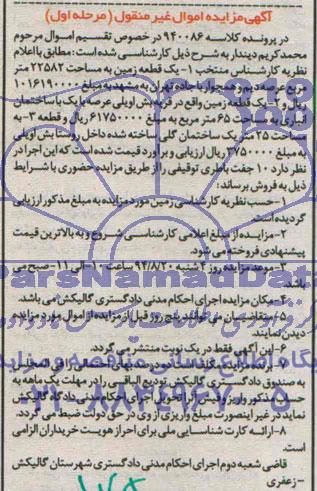 آگهی مزایده اموال غیر منقول (مرحله اول)
در پرونده کلاسه ۹۴۰۰۸۶ در خصوص تقسیم اموال مرحوم
محمد کریم دیندار به شرح ذیل کارشناسی شده است: مطابق با اعلام
نظریه کارشناس منتخب ۱- یک قطعه زمین به مساحت ۲۲۵۸۲ متر
مربع عرصه دیم و همجوار با جاده تهران به مشهد به مبلغ ۱۰۱۶۱۹۰۰۰۰
ریال و ۲- یک قطعه زمین واقع در قریه بش اویلی عرصه با یک باب ساختمان
انباری به مساحت ۶۵ متر مربع به مبلغ ۶۱۷۵۰۰۰۰ ریال و قطعه ۳- به
مساحت ۲۵ متر یک ساختمان گلی ساخته شده داخل روستا بش اویلی
به مبلغ ۳۷۵۰۰۰۰ ریال ارزیابی و برآورد قیمت شده است که این اجرا در
نظر دارد ۱۰ جفت باطری توقیفی را از طریق مزایده حضوری با شرایط
ذیل به فروش برساند:
۱- حسب نظریه کارشناسی زمین مورد مزایده به مبلغ مذکور ارزیابی
گردیده است.
۲- مزایده از مبلغ اعلامی کارشناسی شروع و به بالاترین قیمت
پیشنهادی فروخته می شود.
۳- موعد مزایده روز ۲ شنبه ۹۴/۸/۲۰ ساعت ۱۰ الی ۱۱ صبح می
باشد.
۴- مکان مزایده اجرای احکام مدنی دادگستری گالیکش می باشد.
۵- متقاضیان می توانند پنج روز قبل از مزایده از اموال مورد مزایده
دیدن نمایند.
۶- این آگهی فقط در یک نوبت منتشر می گردد.
۷- برنده مزایده مکلف است ده درصد بهای احتمالی را فی المجلس
به صندوق دادگستری گالیکش تودیع الباقی را در مهلت یک ماهه به
حساب مذکور واریز و فیش آنرا تحویل اجرای احکام مدنی دادگاه گالیکش
نماید در غیر اینصورت مبلغ واریزی از وی در حق دولت ضبط می گردد.
۸- ارائه کارت شناسایی ملی برای احراز هویت خریداران الزامی
است.
قاضی شعبه دوم اجرای احکام مدنی دادگستری شهرستان گالیکش
- زعفری
ParsNamadData